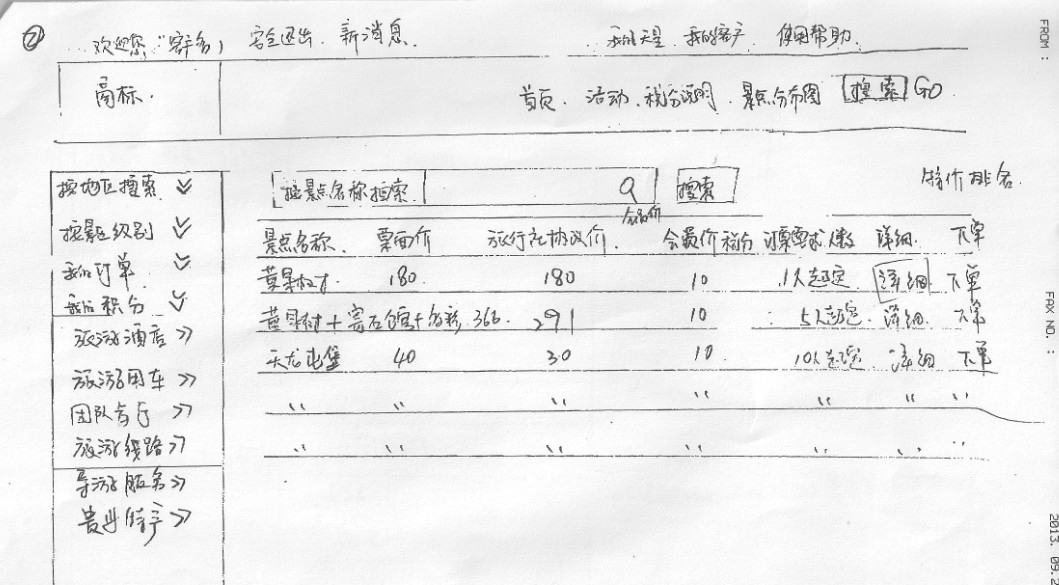 ② 欢迎您,"客户名) 安全退出 新消息. 我的关星 我的客户 使用帮助.
商标. 首页. 活动. 积分说明. 景点分布图 搜索 GO
按地区搜索 按景点名称搜索 Q 搜索 特价排名
会员价
按景区级别 景点名称. 票面价 旅行社协议价. 会员价积分 订票要求人数 详细. 下单
我的订单 黄果树 180. 180 10 1人起定 详细 下单
我的积分 黄果树+ 366. 291 10 5人起定 详细. 下单
旅游酒店 >> 天龙屯堡 40 30 10. 10人起定 详细 下单
旅游用车 >> " " " " " " "
团队 >>
旅游线路 >> " " " " " " "
导游服务 >>
贵州特产 >>
FROM :
FAX NO. :
2013. 09.